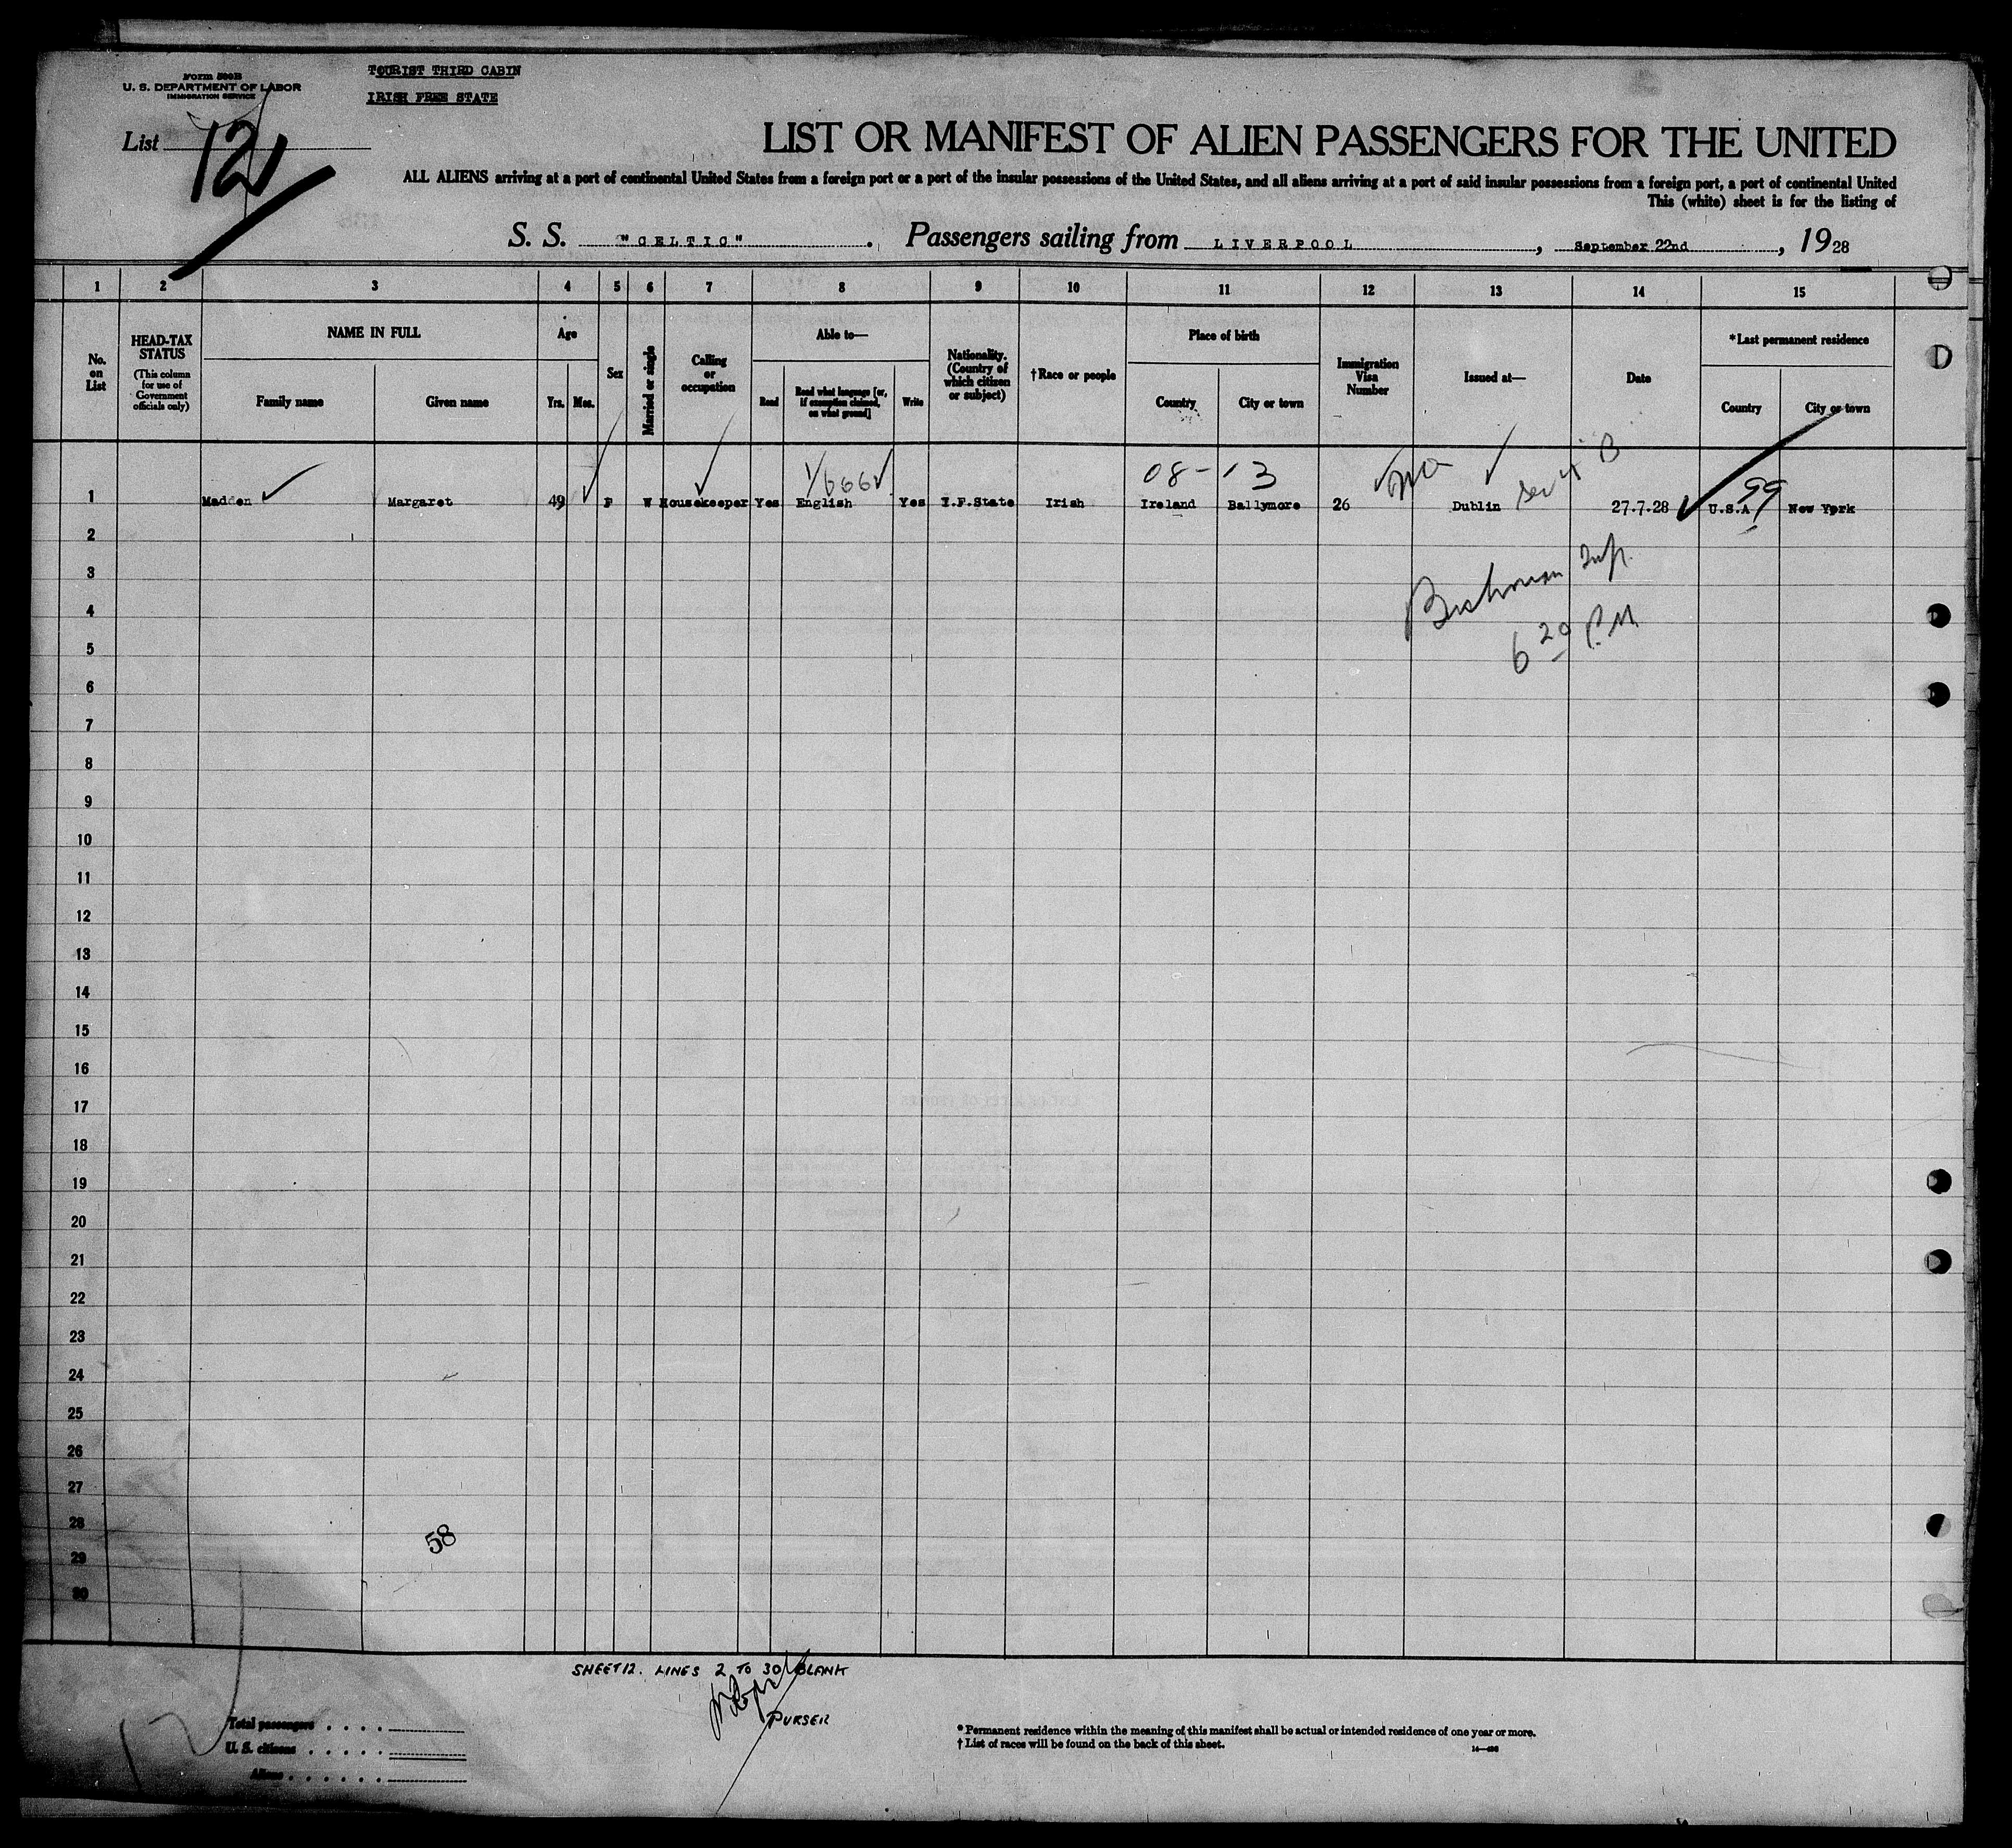 Form 500B
U. S. DEPARTMENT OF LABOR
IMMIGRATION SERVICE
TOURIST THIRD CABIN
IRISH FREE STATE
List 12
LIST OR MANIFEST OF ALIEN PASSENGERS FOR THE UNITED
ALL ALIENS arriving at a port of continental United States from a foreign port or a port of the insular possessions of the United States, and all aliens arriving at a port of said insular possessions from a foreign port, a port of continental United
This (white) sheet is for the listing of
S. S. "CELTIC". Passengers sailing from LIVERPOOL, September 22nd, 1928
1 2 3 4 5 6 7 8 9 10 11 12 13 14 15
No. on List
HEAD-TAX STATUS
(This column for use of Government officials only)
NAME IN FULL
Family name Given name
Age
Yrs. Mos.
Sex
Married or single
Calling or occupation
Able to—
Read
Read what language [or, if exemption claimed, on what ground]
Write
Nationality. (Country of which citizen or subject)
†Race or people
Place of birth
Country City or town
Immigration Visa Number
Issued at—
Date
*Last permanent residence
Country City or town
08-13
99
1 Madden Margaret 49 F W Housekeeper Yes English Yes I.F.State Irish Ireland Ballymore 26 Dublin 27.7.28 U.S.A New York
2
3
4
6 20 P.M.
5
6
7
8
9
10
11
12
13
14
15
16
17
18
19
20
21
22
23
24
25
26
27
28
58
29
30
SHEET 12. LINES 2 TO 30 BLANK
PURSER
Total passengers
U. S. citizens
Aliens
* Permanent residence within the meaning of this manifest shall be actual or intended residence of one year or more.
† List of races will be found on the back of this sheet.